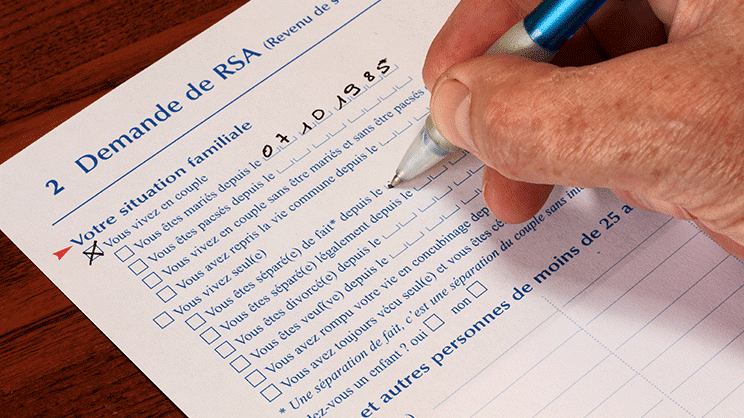 2 Demande de RSA (Revenu de s
Votre situation familiale
Vous vivez en couple
Vous êtes mariés depuis le 07101985
Vous êtes pacsés depuis le
Vous vivez en couple sans être mariés et sans être pacsés
Vous avez repris la vie commune depuis le
Vous vivez seul(e)
Vous êtes séparé(e) de fait* depuis le
Vous êtes séparé(e) légalement depuis le
Vous êtes divorcé(e) depuis le
Vous êtes veuf(ve) depuis le
Vous avez rompu votre vie en concubinage depuis
Vous avez toujours vécu seul(e) et vous êtes cé
* Une séparation de fait, c'est une séparation du couple sans in
dez-vous un enfant ? oui non
et autres personnes de moins de 25 a